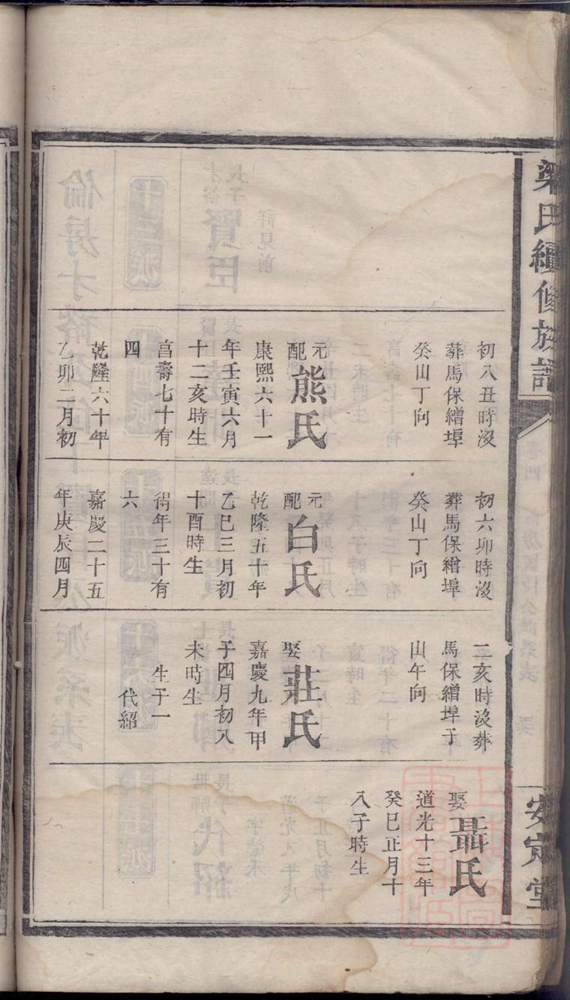 梁氏續修族譜
安定堂
初八丑時沒
葬馬保繒埠
癸山丁向
元配熊氏
康熙六十一
年壬寅六月
十二亥時生
享壽七十有
四
乾隆六十年
乙卯二月初
初六卯時沒
葬馬保繒埠
癸山丁向
元配白氏
乾隆五十年
乙巳三月初
十酉時生
得年三十有
六
嘉慶二十五
年庚辰四月
二亥時沒葬
馬保繒埠子
山午向
娶莊氏
嘉慶九年甲
子四月初八
未時生
生子一
代紹
娶聶氏
道光十三年
癸巳正月十
八子時生